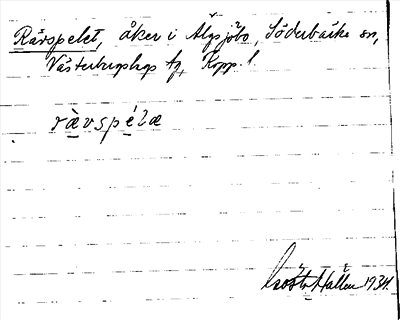 Rävspelet, åker i Älgsjöbo, Söderbärke sn,
Västerbergslags fg, Kopp. l.
rävspélæ
Gösta Hallen 1934.